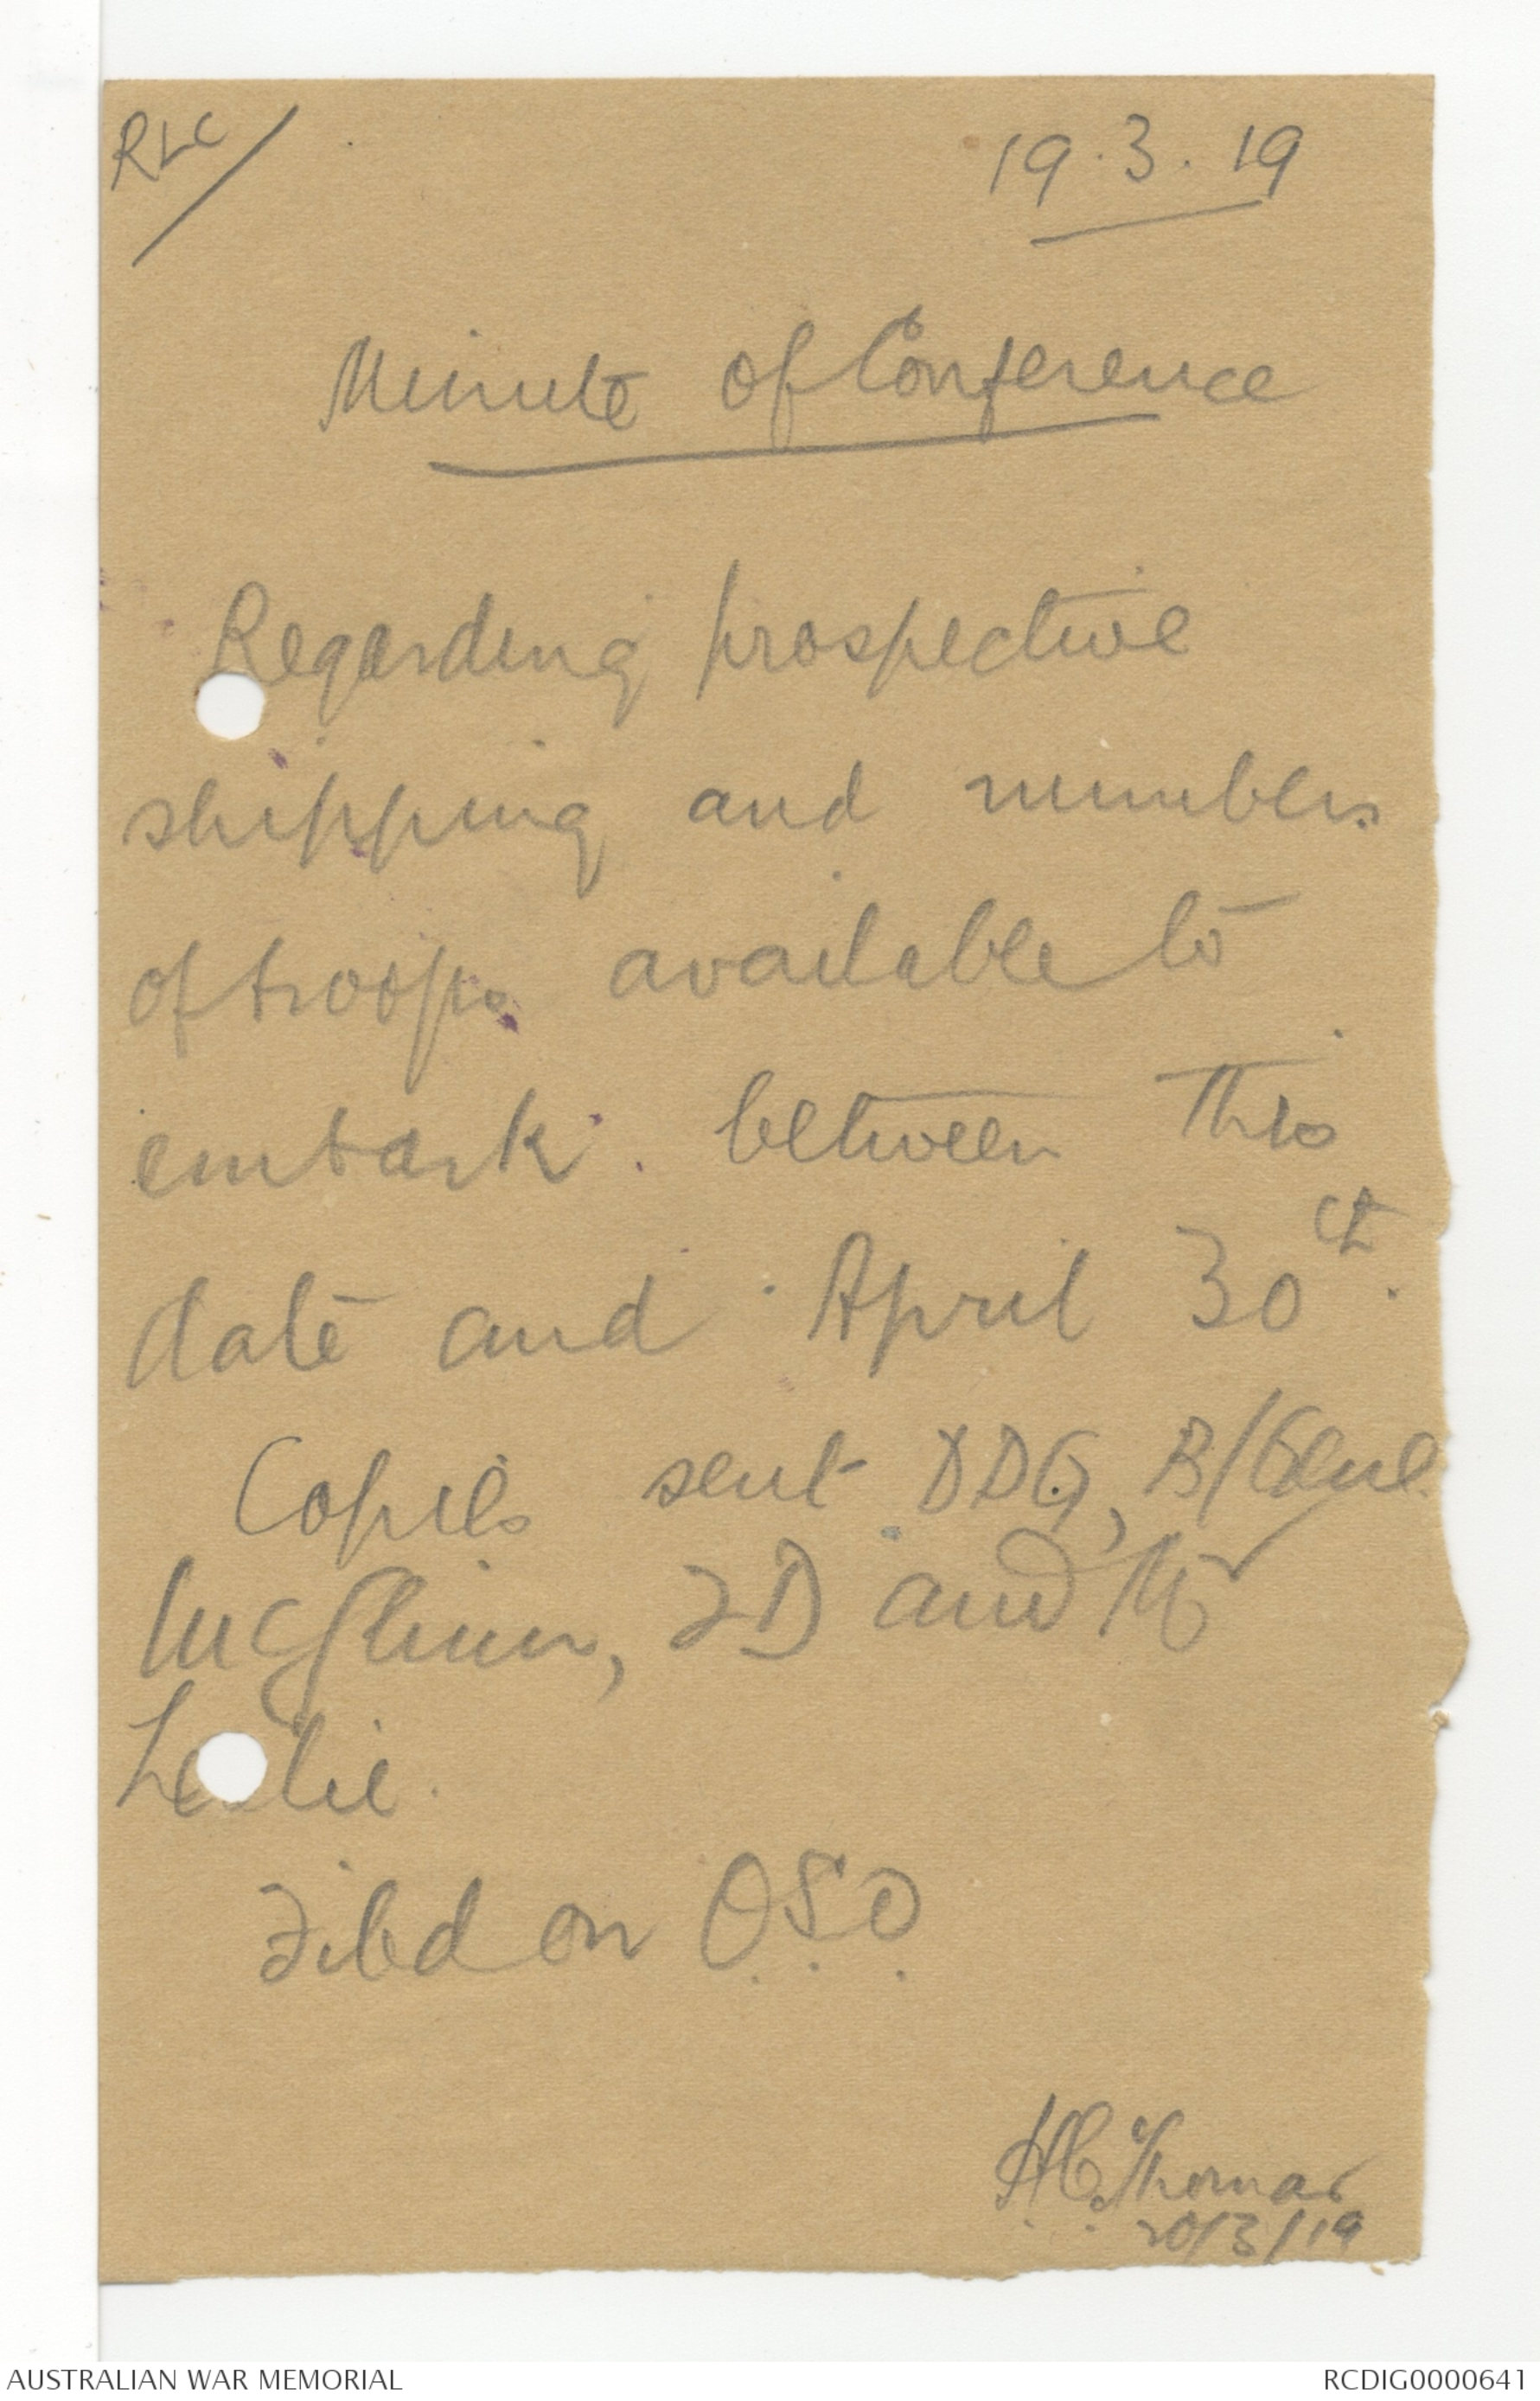 RLC/
19.3.19
Minute of Conference
Regarding prospective
shipping and numbers
of troops available to
embark between this
date and April 30th.
Copies sent DDG, B/Genl
McGlinn, 2D and Mr
Leslie.
Filed on O.S.O.
H.C. Thomas
20/3/19
AUSTRALIAN WAR MEMORIAL
RCDIG0000641